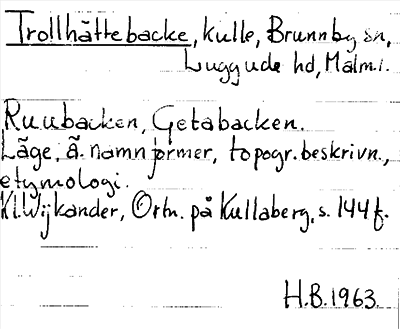 Trollhättebacke, kulle, Brunnby sn,
Luggude hd, Malm.l.
Ruubacken, Getabacken.
Läge, ä. namnformer, topogr. beskrivn.,
etymologi.
Kl. Wijkander, Ortn. på Kullaberg, s. 144 f.
H.B. 1963.